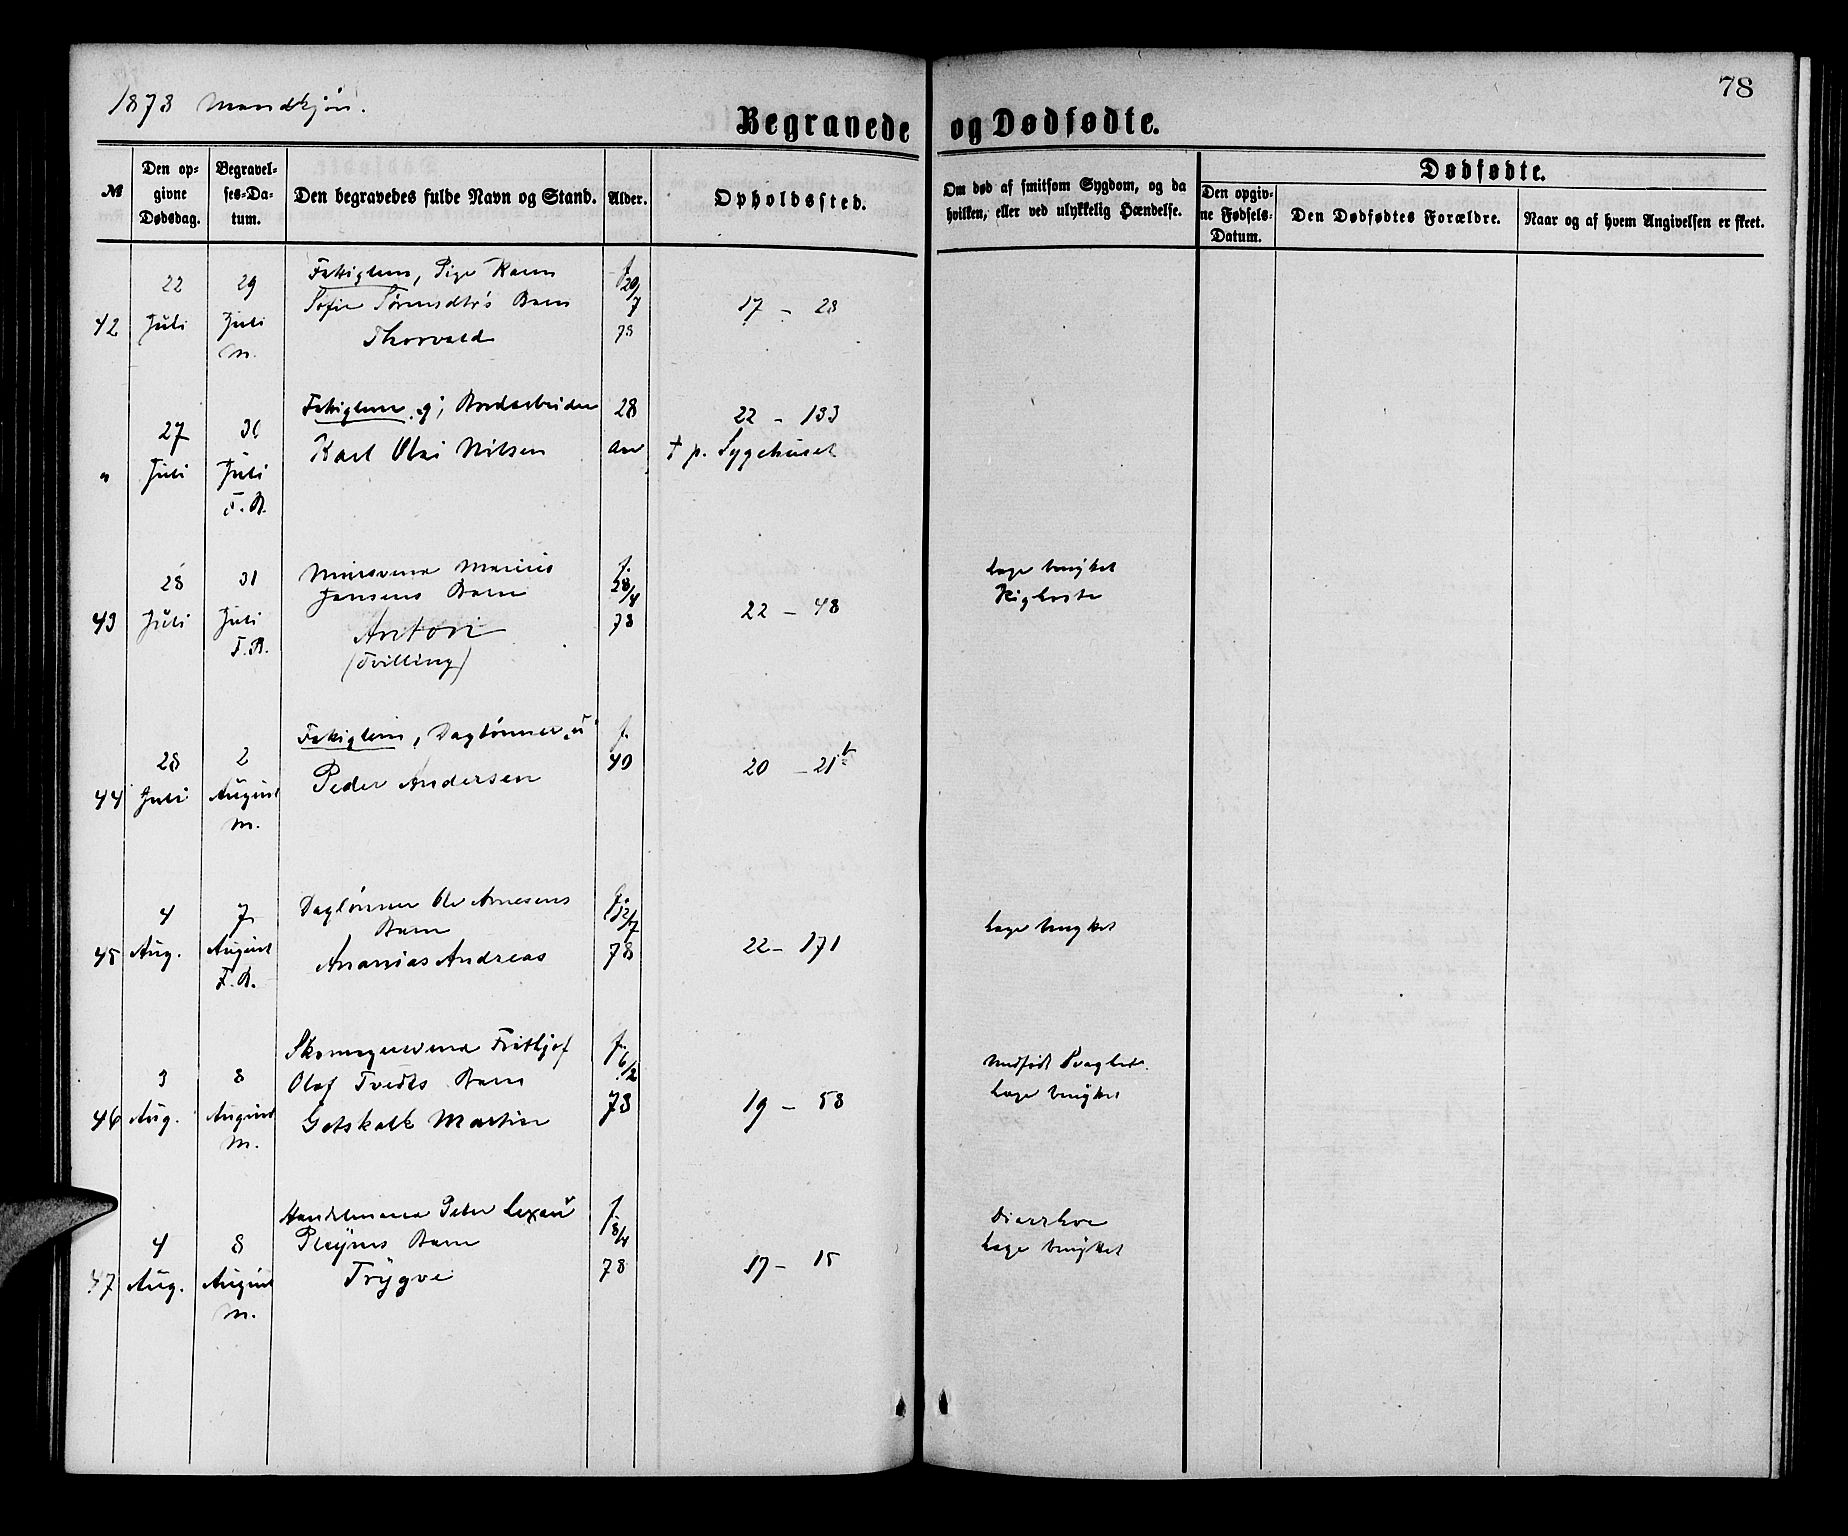 78
1878 Mandkjøn.
Begravede og Dødfødte.
№
Den op-
givne
Dødsdag.
Begravel-
ses-Da-
tum.
Den begravedes fulde Navn og Stand.
Alder.
Opholdssted.
Om død af smitsom Sygdom, og da
hvilken, eller ved ulykkelig Hændelse.
Dødfødte.
Den opgiv-
ne Fødsels-
Datum.
Den Dødfødtes Forældre.
Naar og af hvem Angivelsen er skeet.
42
22
Juli
29
Juli
M.
Fattiglem, Pige Karen
Sofie Sørensdtr's Barn
Thorvald
f
20/7
78
17 - 28
"
27
Juli
Juli
F. B.
Fattiglem, g;
Karl Olai Nilsen
28
Aar
22 - 133
† p. Sygehuset
43
28
Juli
31
Juli
F. B.
Mursvend Marius
Jansens Barn
Anton
(Tvilling)
f.
28/4
78
22 - 48
Læge benyttet
Kighoste
44
28
Juli
2
August
M.
Fattiglem, Dagl��nner, u
Peder Andersen
f.
40
20 - 21 b
45
4
Aug.
7
August
F. B.
Daglønner Ole Arnesens
Barn
Ananias Andreas
f.
12/7
78
22 - 171
Læge benyttet
46
3
Aug.
8
August
M.
Skomagersvend Frithjof
Olaf Tvedts Barn
Gotskalk Martin
f.
6/2
78
19 - 58
Medfødt Svaghed.
Læge benyttet
47
4
Aug.
8
August
M.
Handelsmand Peter Lexau
Pleyms Barn
Trygve
f.
18/4
78
17 - 15
Diarrhoe
Læge benyttet